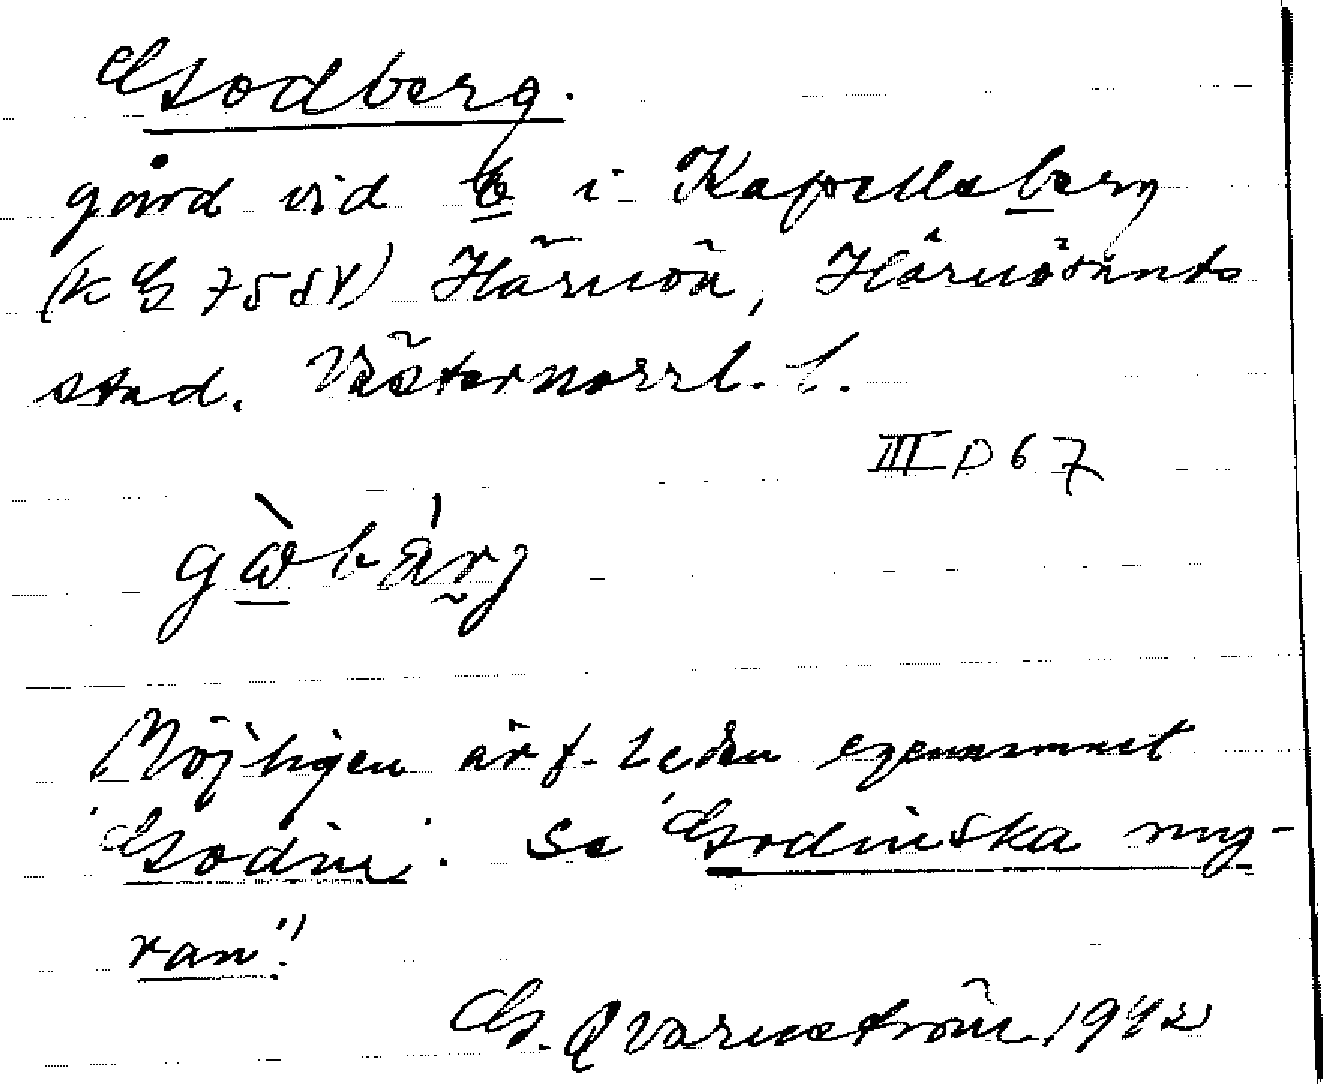 Godberg.
gård vid b i Kapellsberg
(KG 7554) Härnön, Härnösands
stad. Västernorrl. l.
III D 67
Möjligen är f. leden egennamnet
"Godin". Se "Godinska my-
ran"!
G. Qvarnström 1942